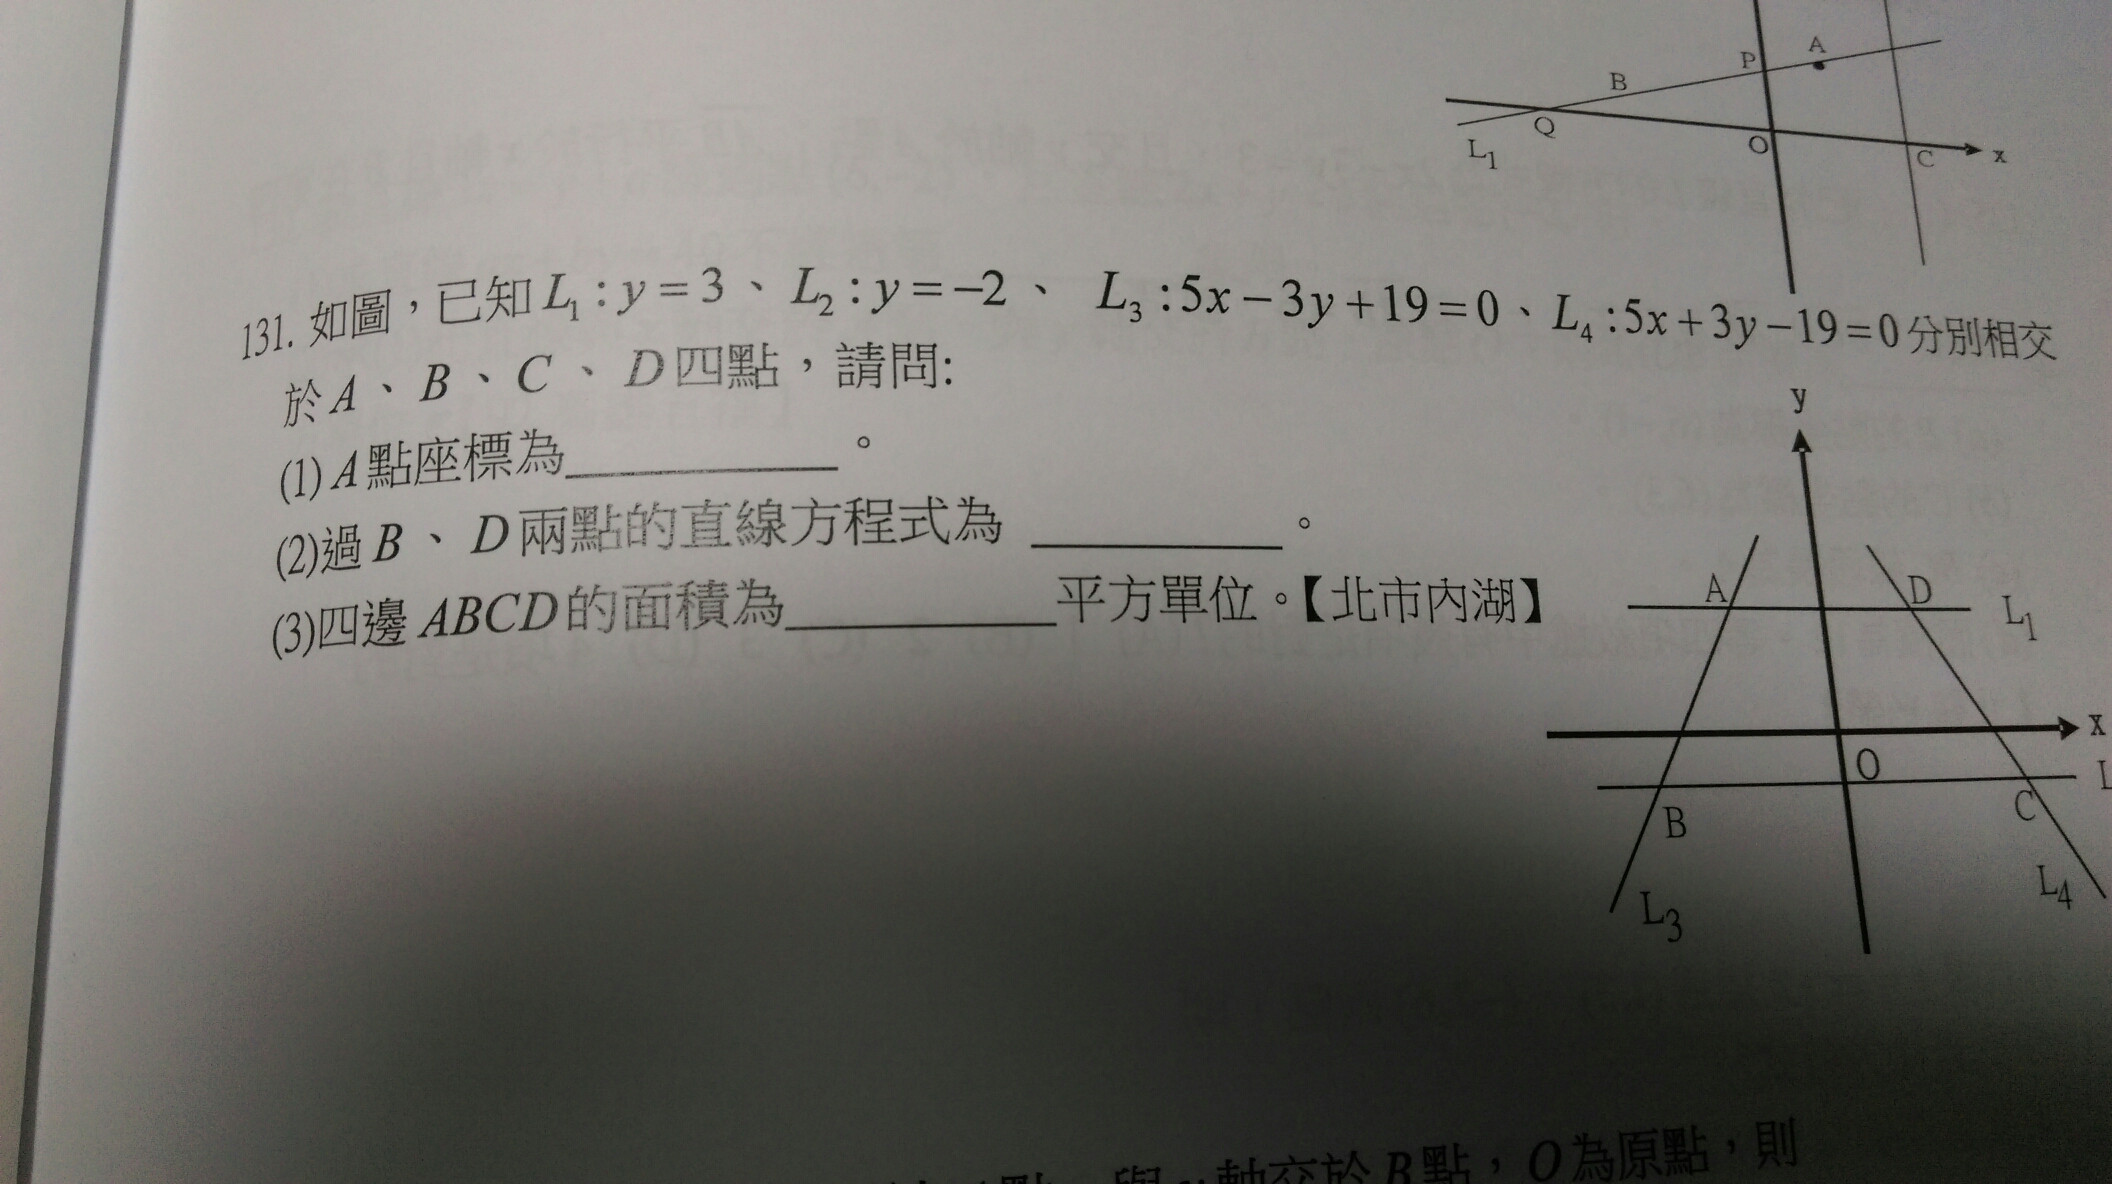 P
A
B
Q
L1
O
C
x
131. 如圖，已知 L₁ : y = 3 、 L₂ : y = −2 、 L₃ : 5x − 3y + 19 = 0 、 L₄ : 5x + 3y − 19 = 0 分別相交
於 A 、 B 、 C 、 D 四點，請問:
(1) A 點座標為__________。
(2)過 B 、 D 兩點的直線方程式為 __________。
(3)四邊 ABCD 的面積為__________平方單位。【北市內湖】
y
A
D
L1
x
O
L
B
C
L4
L3
軸交於 B 點，O 為原點，則